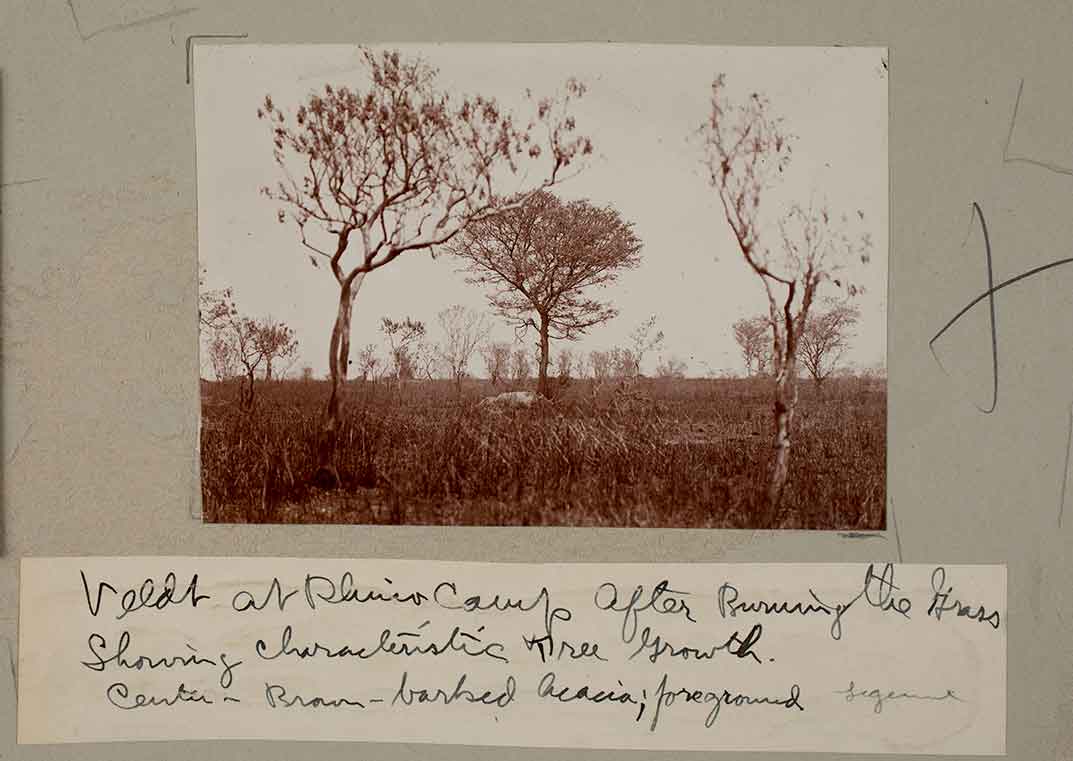 Veldt at Rhino Camp after Burning the Grass
Showing characteristic Tree Growth.
Center - Brown-barked Acacia; foreground